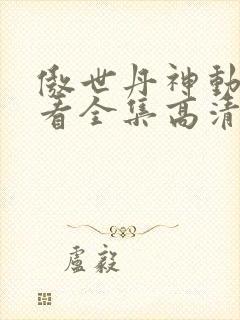 傲世丹神動
看全集高清
盧毅